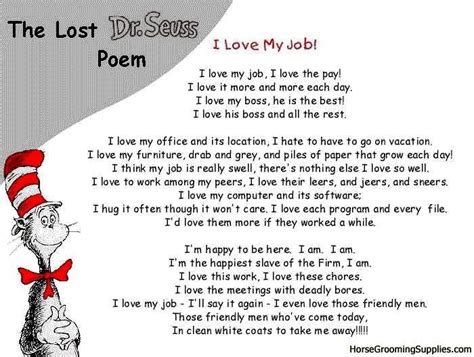 The Lost Dr. Seuss
Poem
I Love My Job!
I love my job, I love the pay!
I love it more and more each day.
I love my boss, he is the best!
I love his boss and all the rest.
I love my office and its location, I hate to have to go on vacation.
I love my furniture, drab and grey, and piles of paper that grow each day!
I think my job is really swell, there's nothing else I love so well.
I love to work among my peers, I love their leers, and jeers, and sneers.
I love my computer and its software;
I hug it often though it won't care. I love each program and every file.
I'd love them more if they worked a while.
I'm happy to be here. I am. I am.
I'm the happiest slave of the Firm, I am.
I love this work, I love these chores.
I love the meetings with deadly bores.
I love my job - I'll say it again - I even love those friendly men.
Those friendly men who've come today,
In clean white coats to take me away!!!!!
HorseGroomingSupplies.com